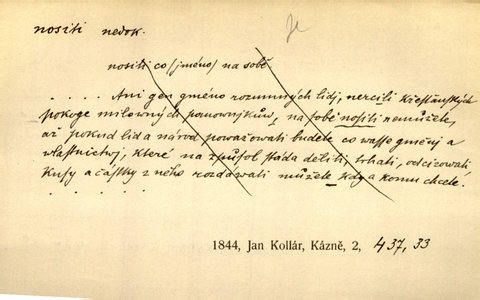 nositi nedok.
nositi co (jméno) na sobě
. . . . . Ani gen gméno rozumných lidj, nercili křesťanských
pokoge milowných panownjkůw, na sobě nositi nemůžete,
až pokud lid a národ powažowati budete co wasse gměnj a
wlastnictwj, které na způsob stáda děliti, trhati, odcizowati
kusy a částky z něho rozdáwati můžete kdy a komu chcete.
. . . . .
1844, Jan Kollár, Kázně, 2, 437, 33